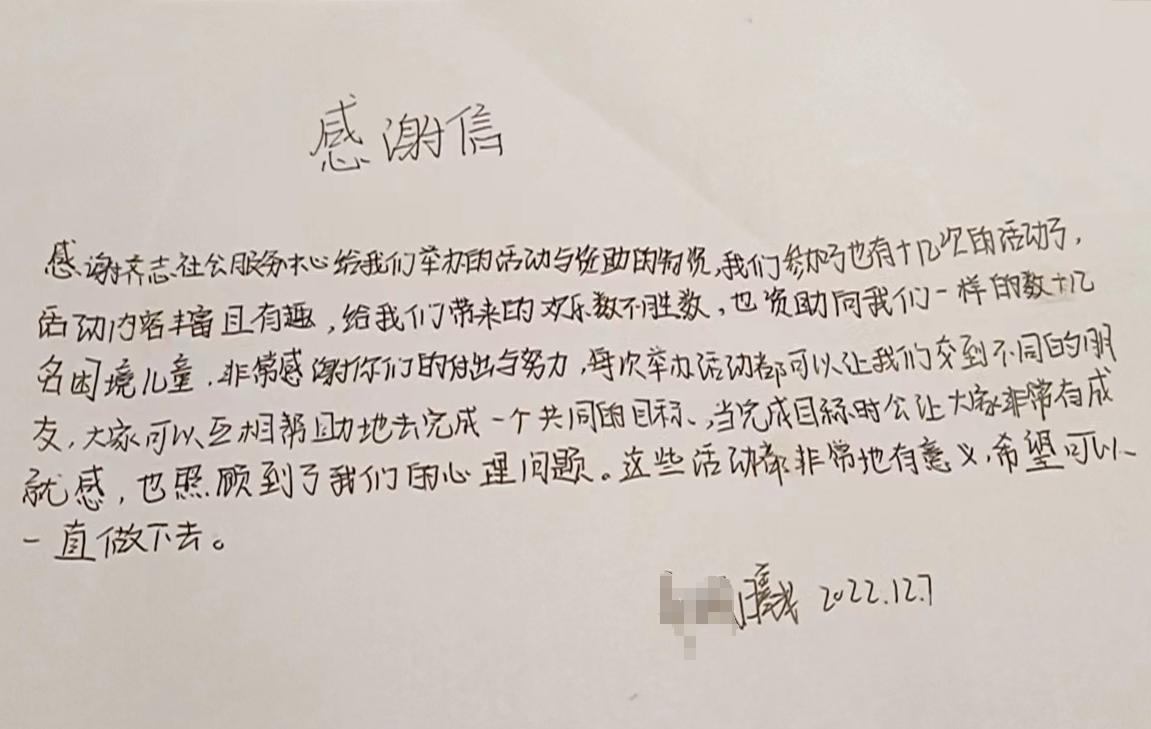 感谢信
感谢齐志社会服务中心给我们举办的活动与资助的物资,我们参加了也有十几次的活动了,
活动内容丰富且有趣,给我们带来的欢乐数不胜数,也资助同我们一样的数十几
名困境儿童.非常感谢你们的付出与努力,每次举办活动都可以让我们交到不同的朋
友,大家可以互相帮助地去完成一个共同的目标、当完成目标时会让大家非常有成
就感,也照顾到了我们的心理问题。这些活动都非常地有意义,希望可以
一直做下去。
2022.12.7